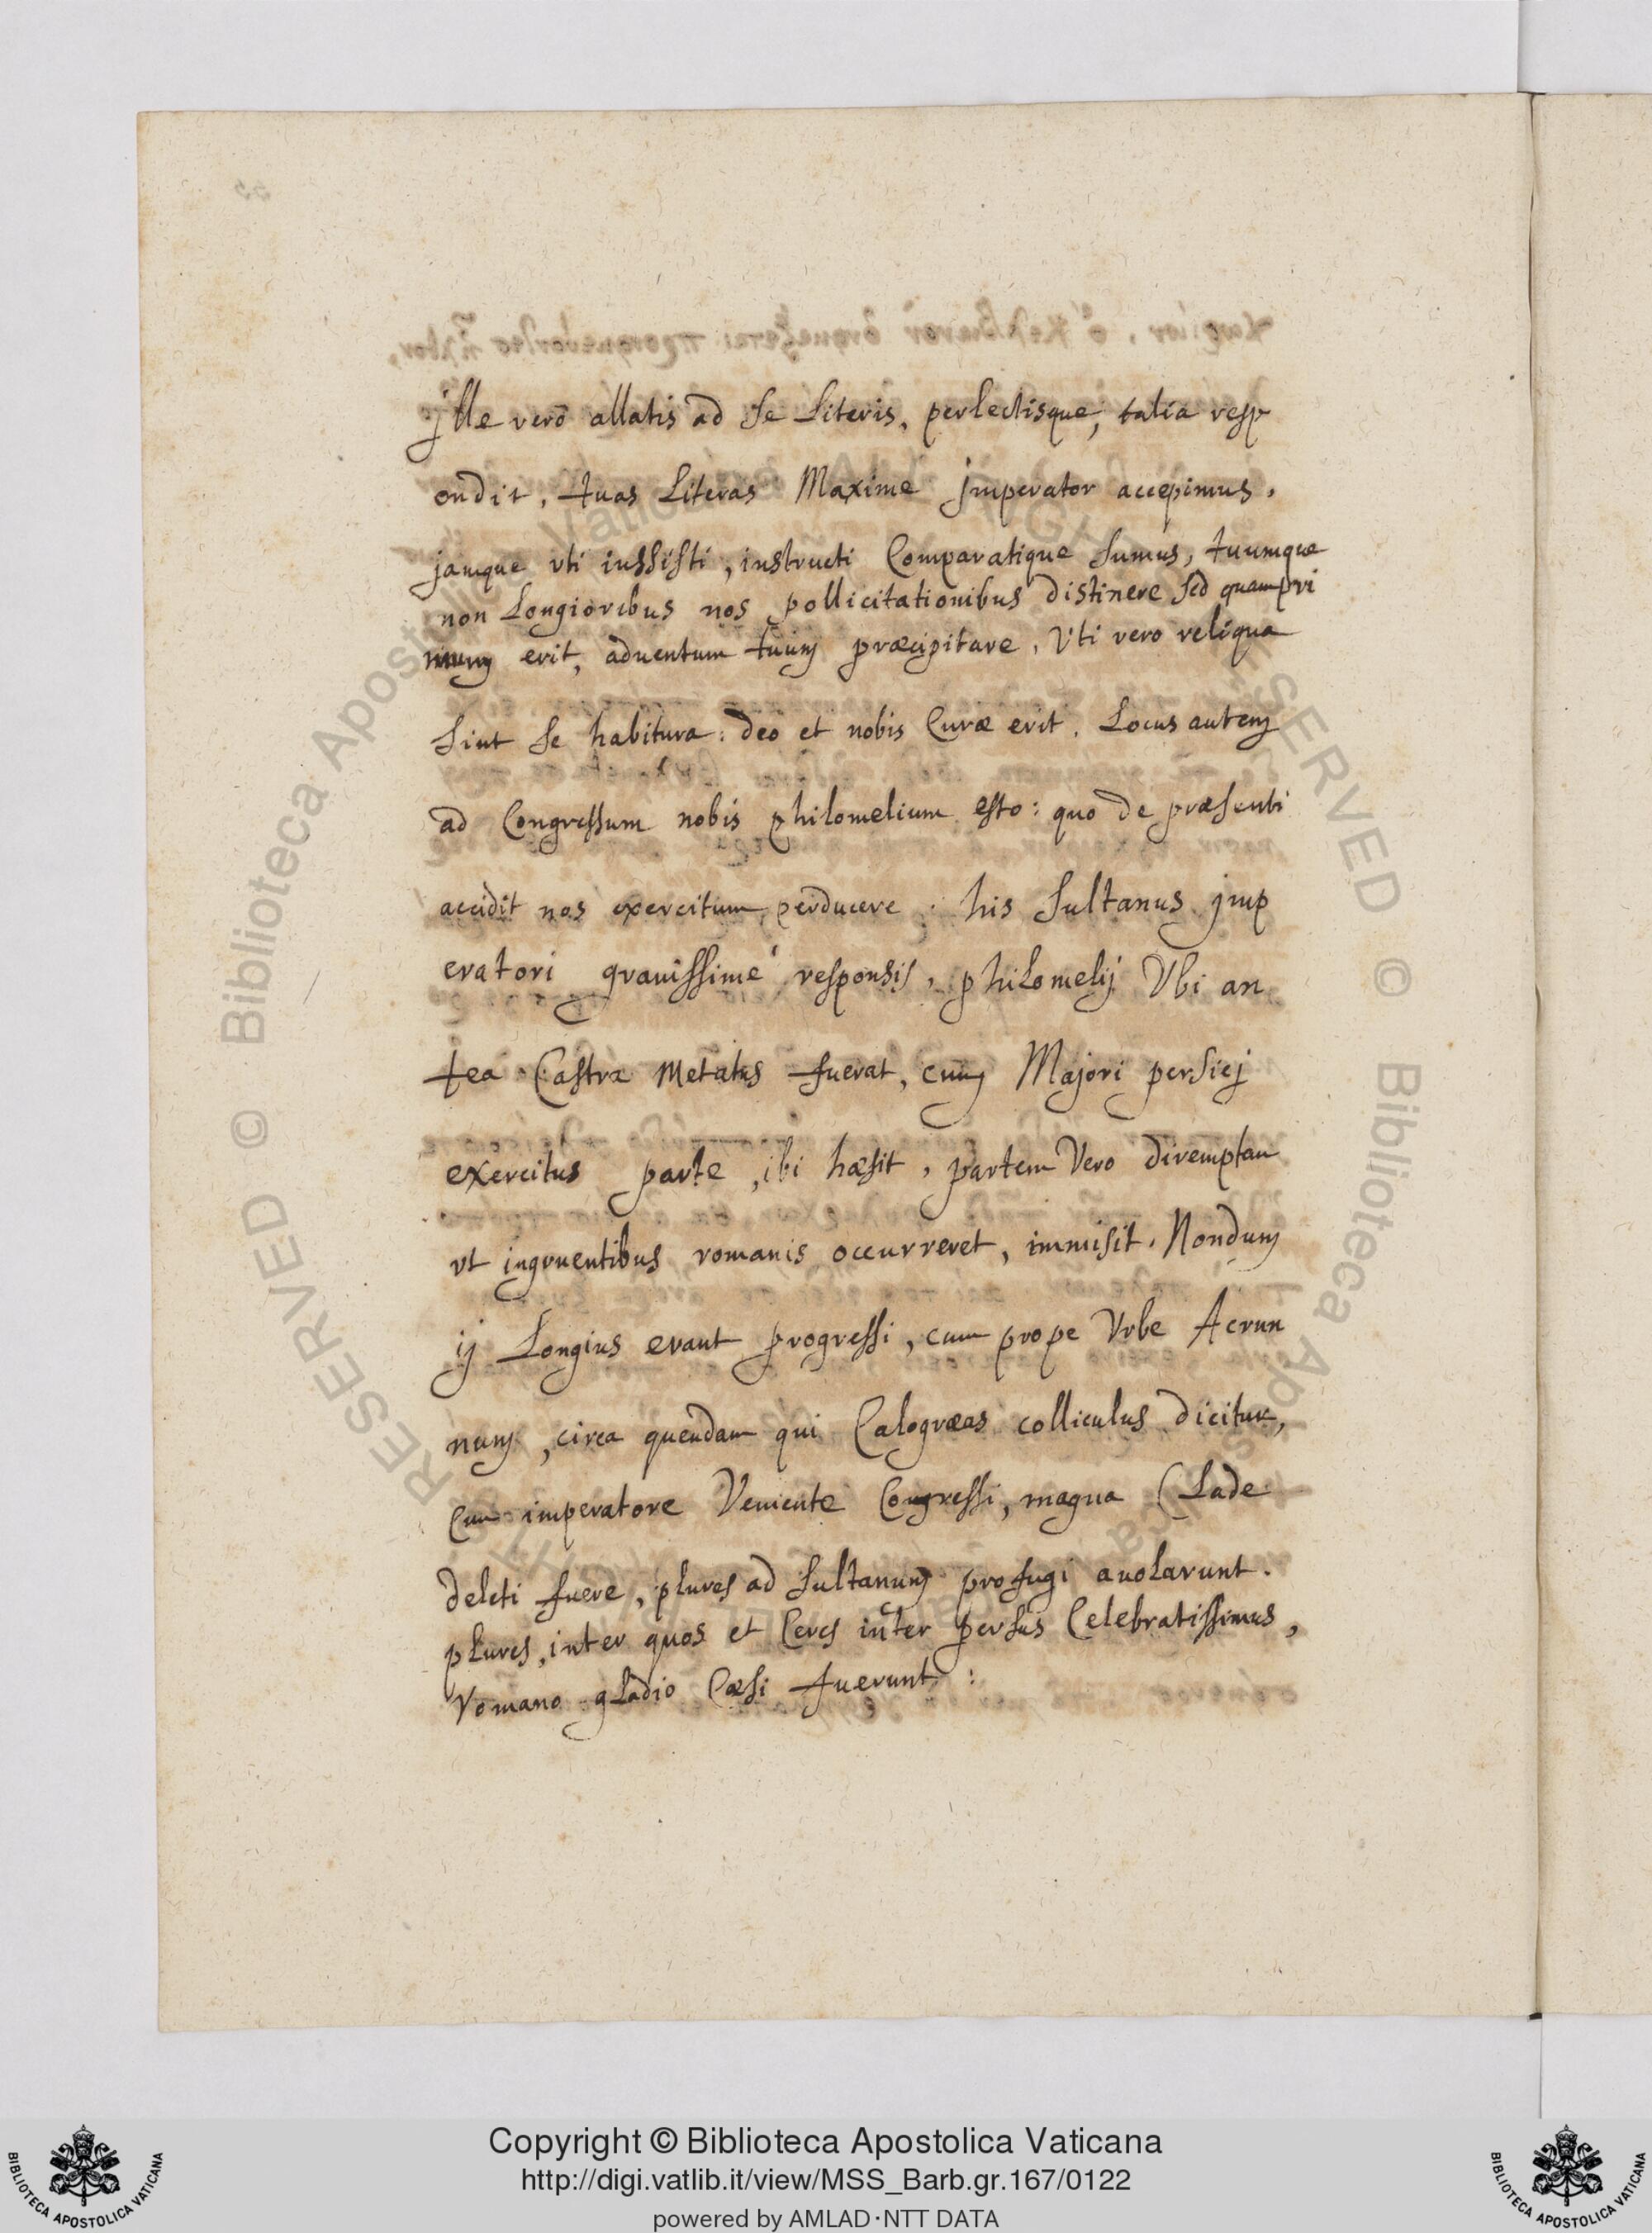 jlle verò allatis ad se Literis, perlectisque, talia resp
ondit, tuas Literas Maxime jmperator accepimus.
jamque vti iussisti, instructi Comparatique sumus, tuumque
non Longioribus nos pollicitationibus distinere sed quampri
mum erit, aduentum tuum præcipitare. Vti vero reliqua
sint se habitura: deo et nobis Curæ erit. Locus autem
ad Congressum nobis philomelium esto: quo de præsenti
accidit nos exercitum perducere. his sultanus jmp
eratori grauissimè responsis, philomelij Vbi an
tea Castra Metatus fuerat, cum Majori persicj
exercitus parte, ibi hæsit, partem Vero diremptam
vt ingruentibus romanis occurreret, immisit. Nondum
ij Longius erant progressi, cum prope Vrbe Acrun
num, circa quendam qui Calogræas colliculus dicitur,
Cum imperatore Veniente Congressi, magna CLade
deleti fuere, plures ad sultanum profugi auolarunt.
plures, inter quos et Ceres inter persas Celebratissimus,
romano gladio Cæsi fuerunt:
© Biblioteca Apostolica Vaticana
RESERVED
Copyright © Biblioteca Apostolica Vaticana
http://digi.vatlib.it/view/MSS_Barb.gr.167/0122
powered by AMLAD·NTT DATA
BIBLIOTECA APOSTOLICA VATICANA
BIBLIOTECA APOSTOLICA VATICANA